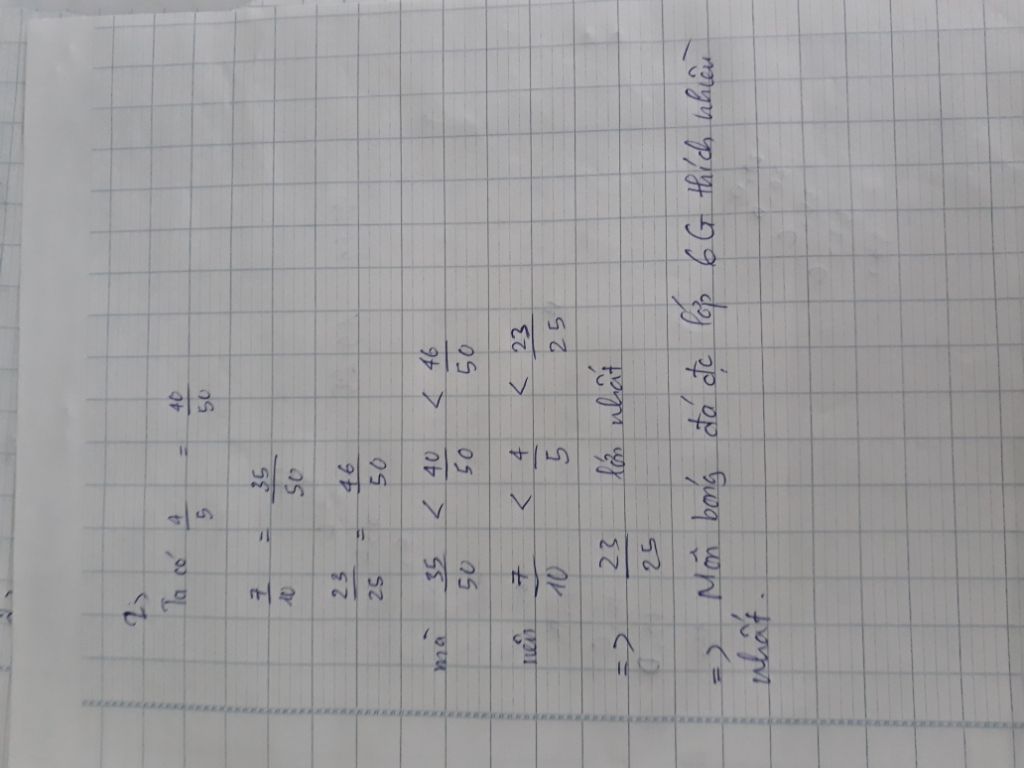 2,
Ta có 4/5 = 40/50
7/10 = 35/50
23/25 = 46/50
mà 35/50 < 40/50 < 46/50
nên 7/10 < 4/5 < 23/25
=> 23/25 lớn nhất
=> Môn bóng đá đc lớp 6G thích nhiều
nhất.